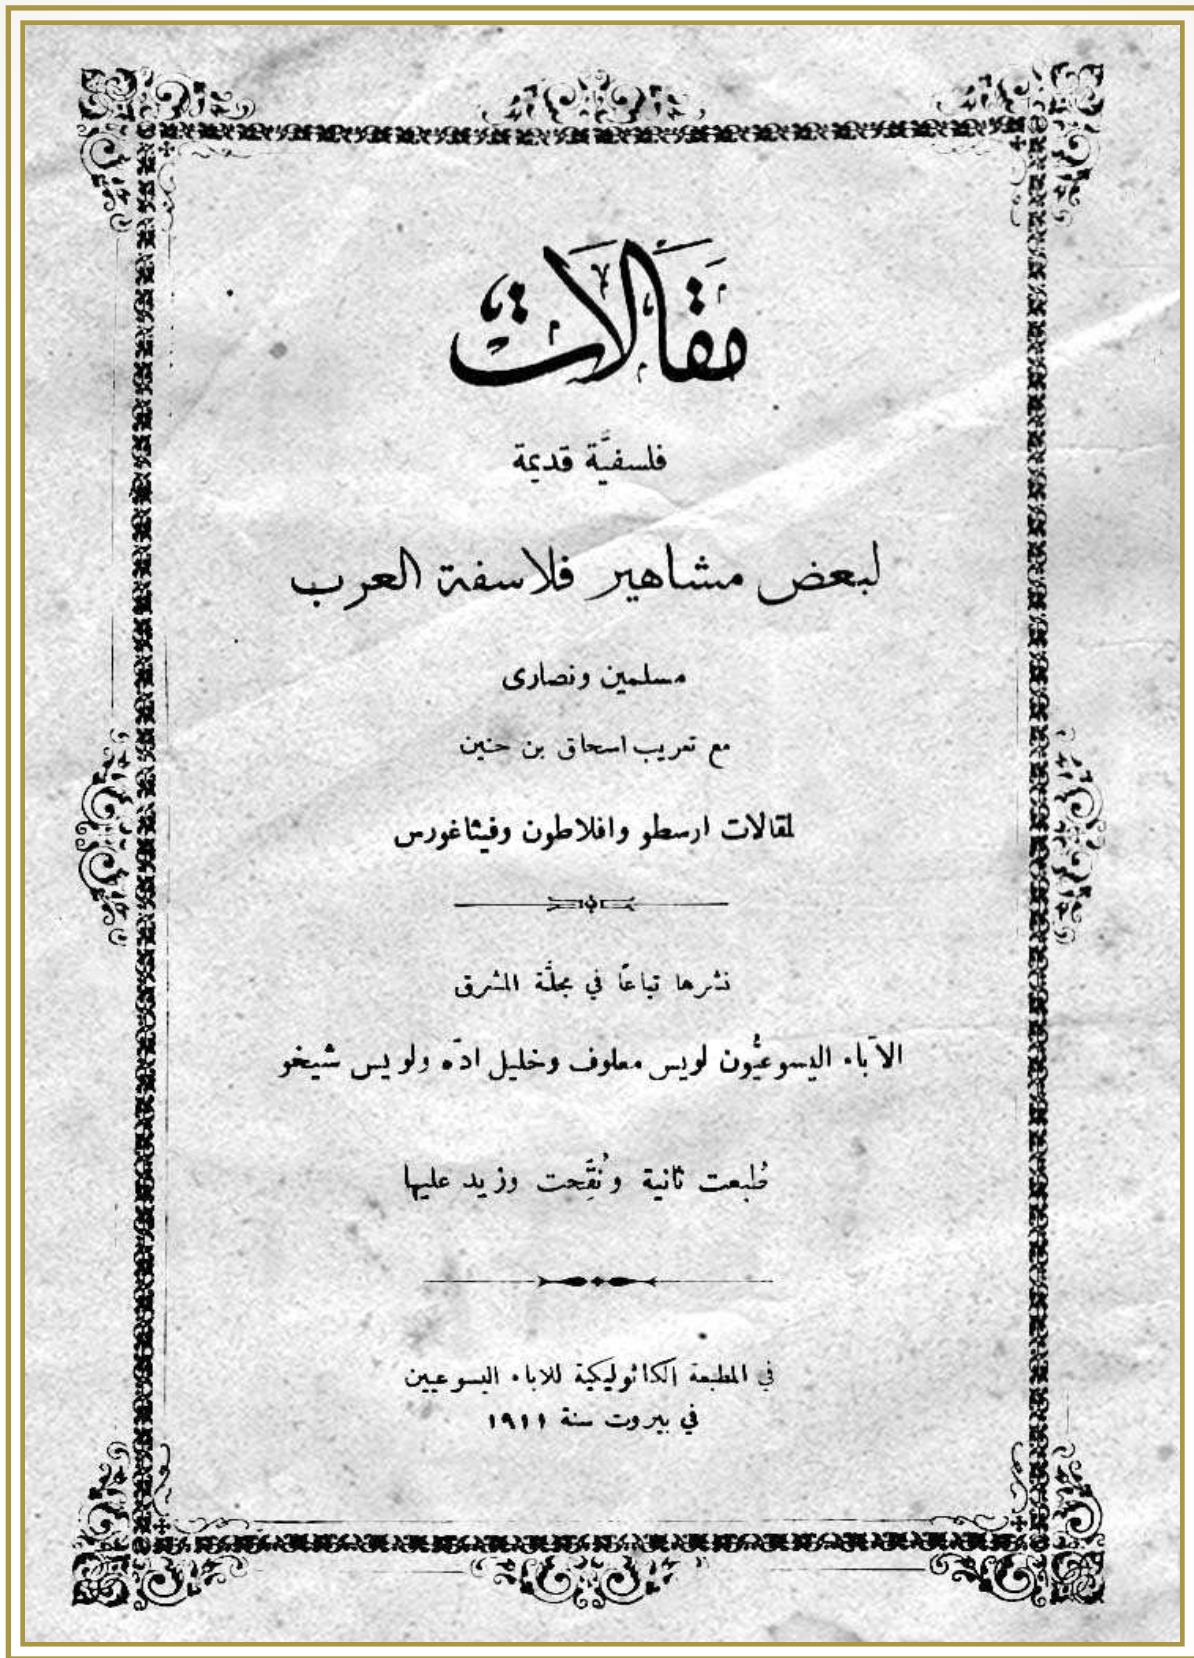 مقالات
فلسفيَّة قديمة
لبعض مشاهير فلاسفة العرب
مسلمين ونصارى
مع تعريب اسحاق بن حنين
لمقالات ارسطو وافلاطون وفيثاغورس
نشرها تباعًا في مجلَّة المشرق
الآباء اليسوعيُّون لويس معلوف وخليل ادّه ولويس شيخو
طُبعت ثانية ونُقِّحت وزيد عليها
في المطبعة الكاثوليكية للاباء اليسوعيين
في بيروت سنة ١٩١١